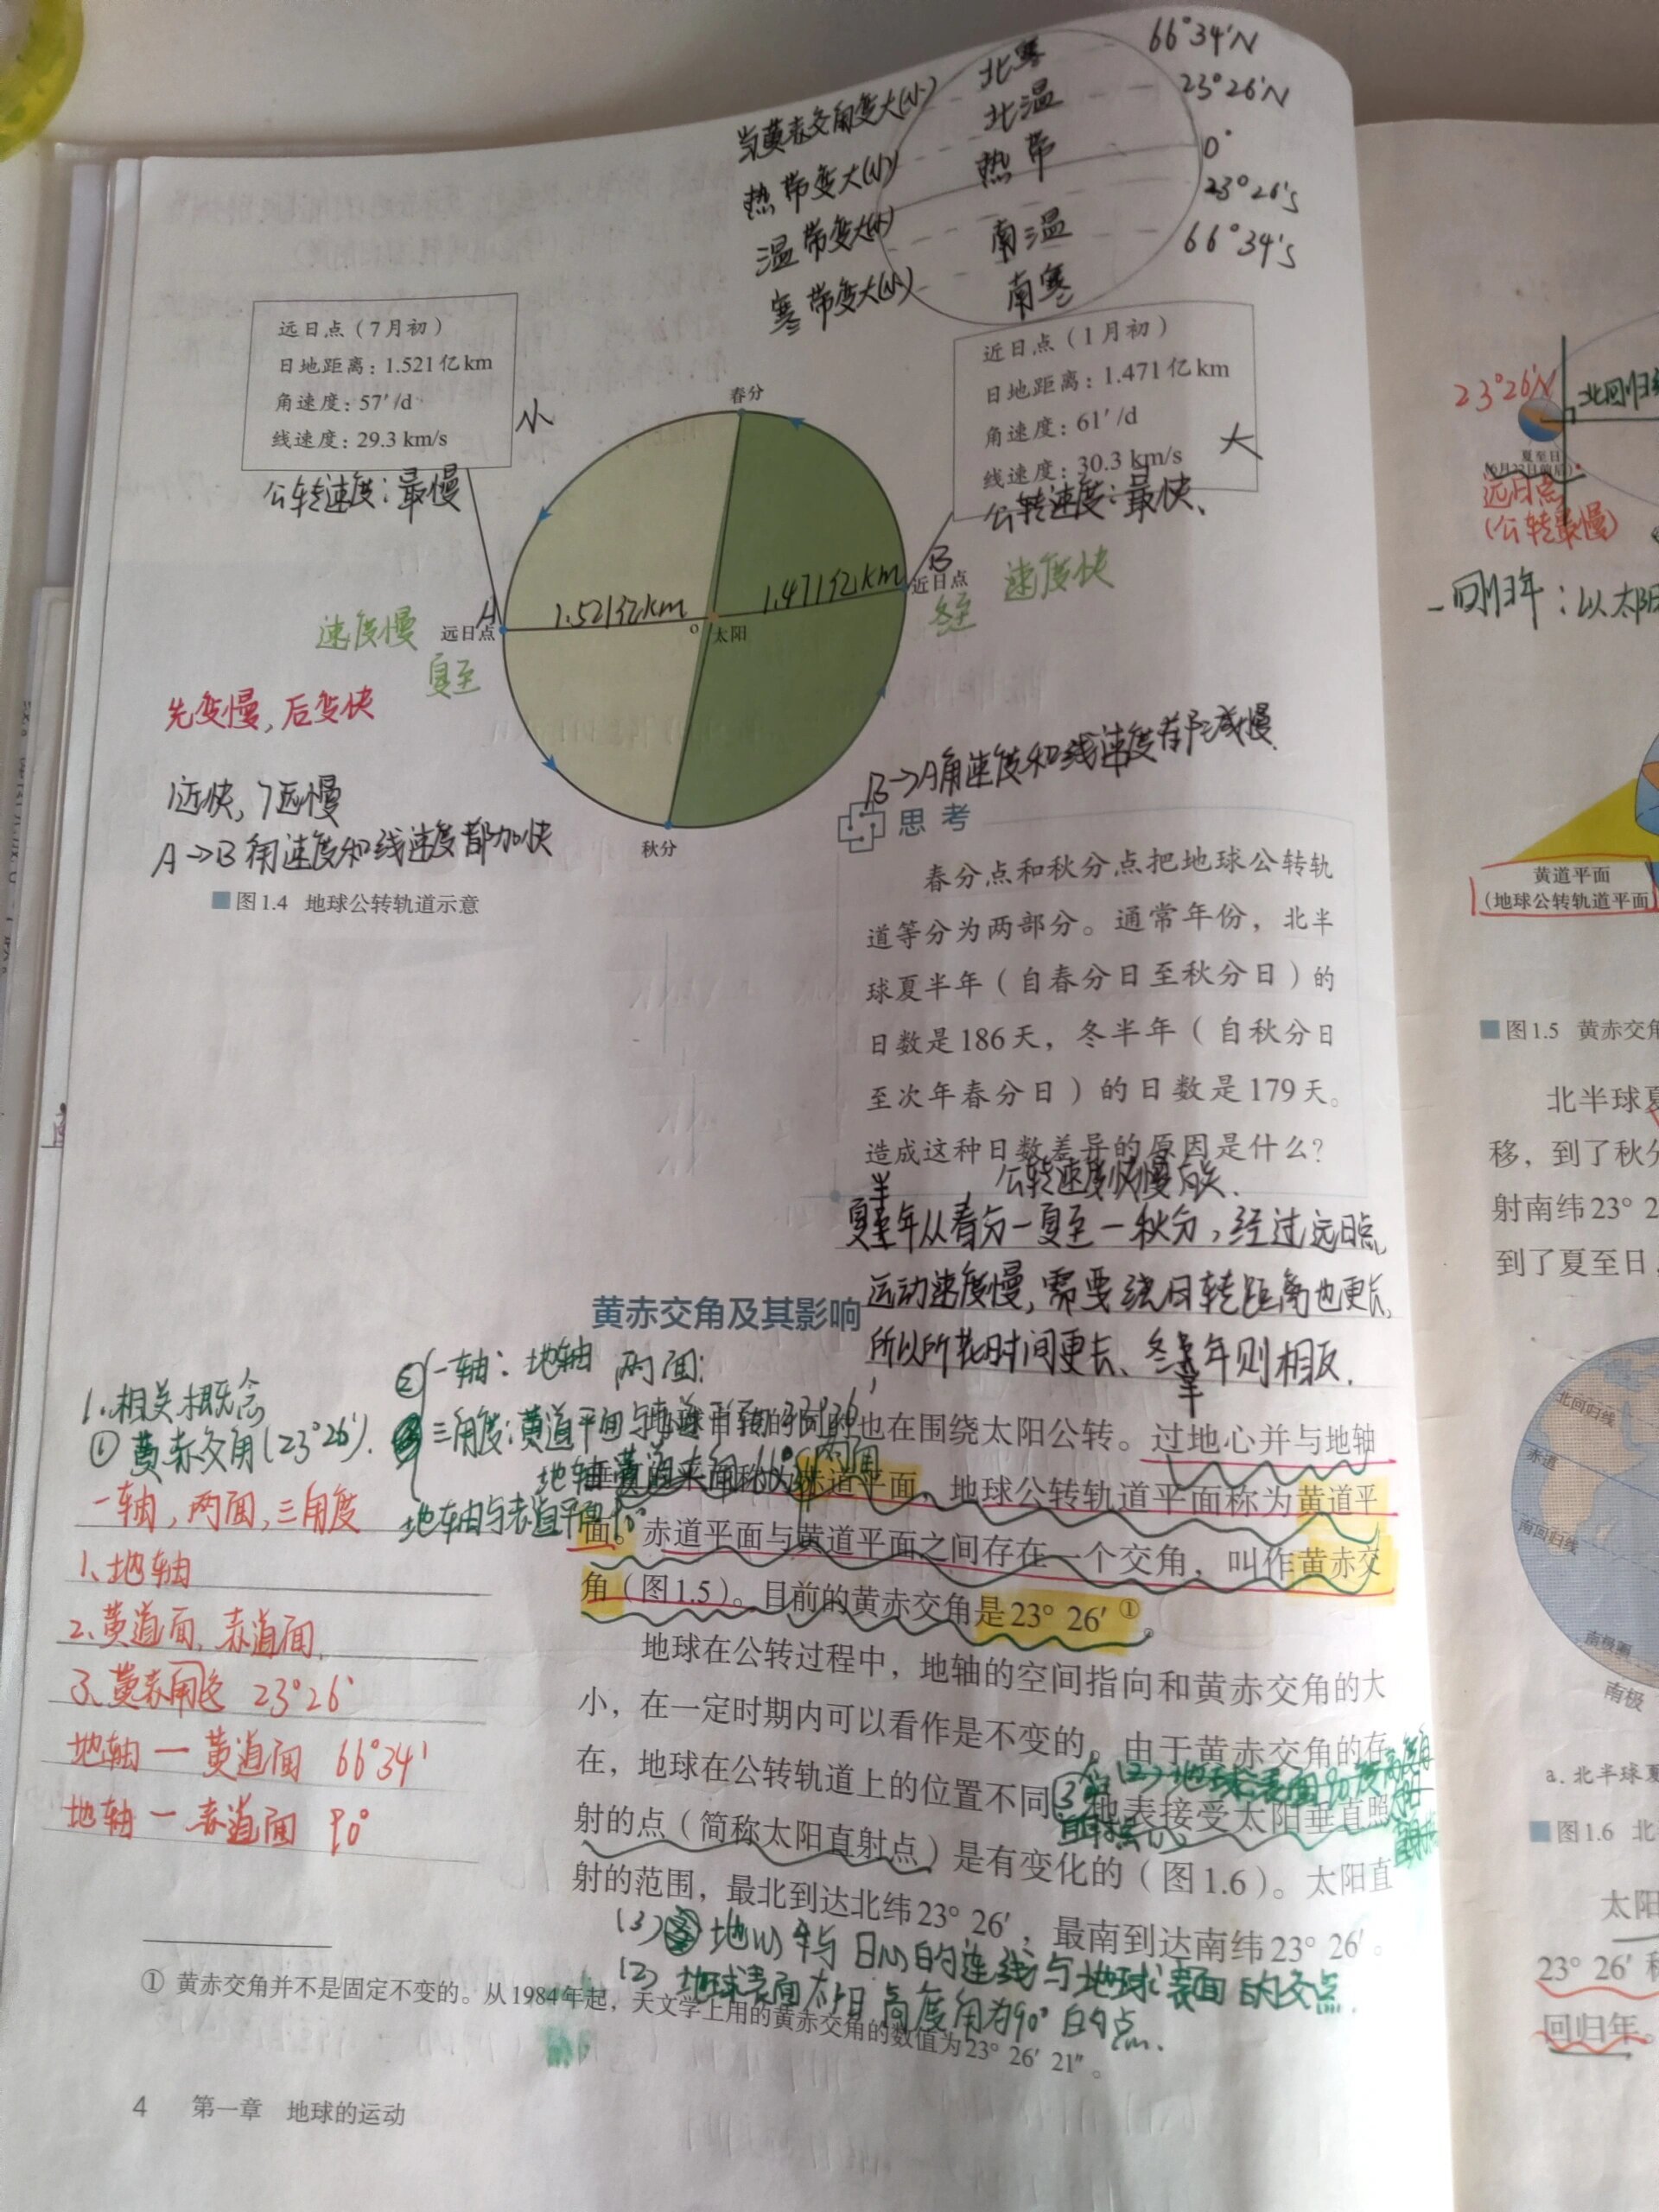 当黄赤交角变大(小)
热带变大(小)
温带变大(小)
寒带变大(小)
北寒
北温
热带
南温
南寒
66°34′N
23°26′N
0°
23°26′S
66°34′S
远日点（7月初）
日地距离：1.521亿km
角速度：57′/d
线速度：29.3 km/s
小
公转速度：最慢
近日点（1月初）
日地距离：1.471亿km
角速度：61′/d
线速度：30.3 km/s
大
公转速度：最快、
春分
A
1.521亿km
1.471亿km
B
近日点
冬至
速度快
速度慢
远日点
夏至
o
太阳
秋分
先变慢，后变快
1近快，7远慢
A→B 角速度和线速度都加快
B→A角速度和线速度都减慢
图1.4 地球公转轨道示意
思考
春分点和秋分点把地球公转轨
道等分为两部分。通常年份，北半
球夏半年（自春分日至秋分日）的
日数是186天，冬半年（自秋分日
至次年春分日）的日数是179天。
造成这种日数差异的原因是什么？
公转速度快慢有关.
夏半年从春分一夏至一秋分，经过远日点
运动速度慢，需要绕日转距离也更长
所以所花时间更长、冬半年则相反.
黄赤交角及其影响
1.相关概念
① 黄赤交角(23°26′).
② 一轴：地轴 两面：
三角度：黄道平面与
地轴与赤道平面90°
也在围绕太阳公转。过地心并与地轴
赤道平面，地球公转轨道平面称为黄道平
面。赤道平面与黄道平面之间存在一个交角，叫作黄赤交
角（图1.5）。目前的黄赤交角是23° 26′ ①。
一轴，两面，三角度
1、地轴
2、黄道面、赤道面.
3、黄赤 23°26′
地轴 一 黄道面 66°34′
地轴 一 赤道面 90°
地球在公转过程中，地轴的空间指向和黄赤交角的大
小，在一定时期内可以看作是不变的。由于黄赤交角的存
在，地球在公转轨道上的位置不同，地表接受太阳垂直照
射的点（简称太阳直射点）是有变化的（图1.6）。太阳直
射的范围，最北到达北纬23° 26′，最南到达南纬23° 26′。
(3) 地心与日心的连线与地球表面的交点.
(2) 地球表面太阳高度角为90°的点.
① 黄赤交角并不是固定不变的。从1984年起，天文学上用的黄赤交角的数值为23° 26′ 21″。
4 第一章 地球的运动
23°26′N
北回归
夏至日
远日点
(公转最慢)
回归年：以太阳
黄道平面
（地球公转轨道平面
图1.5 黄赤交角
北半球夏
移，到了秋分
射南纬23° 2
到了夏至日
北回归线
赤道
南回归线
南极圈
南极
a. 北半球夏
图1.6 北
太阳
23° 26′
回归年。